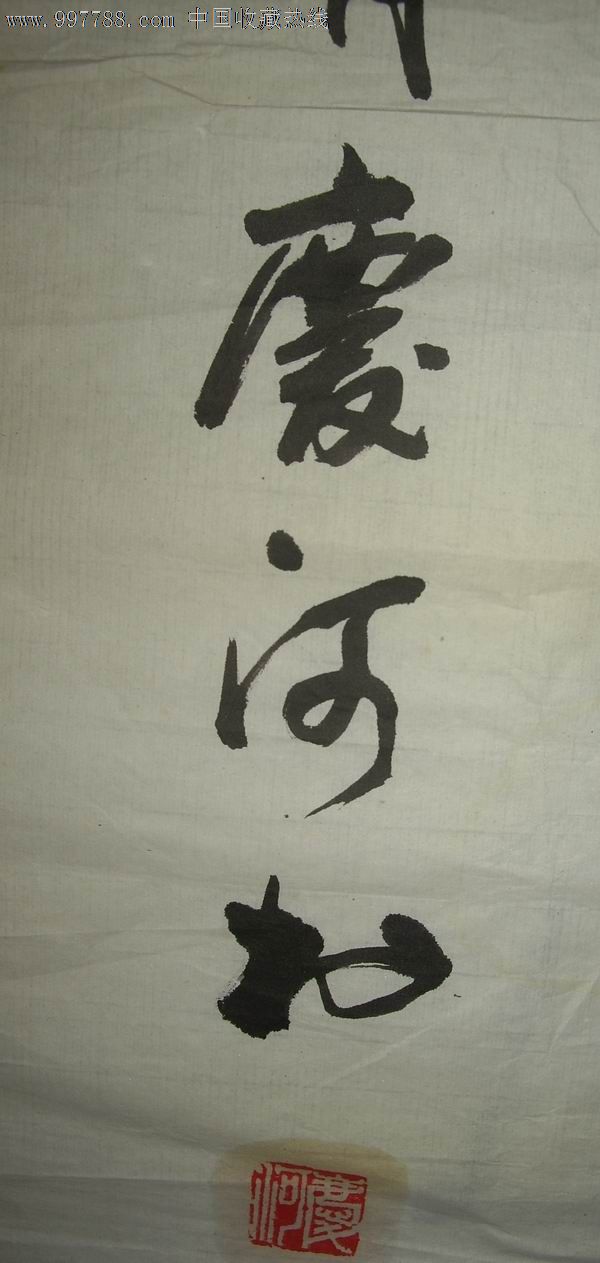 www.997788.com 中国收藏热线
慶
河
慶河